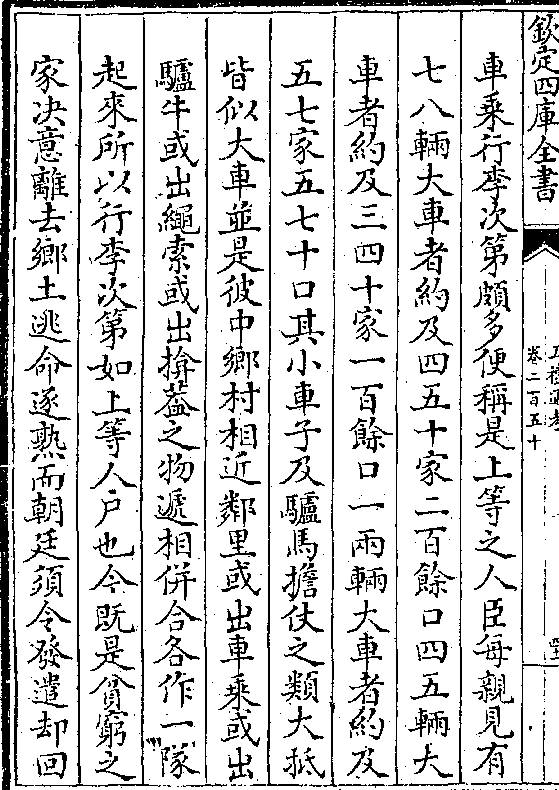 欽定四庫全書
五禮通考
卷二百五十
車乗行李次第頗多便稱是上等之人臣每親見有
七八輛大車者約及四五十家二百餘口四五輛大
車者約及三四十家一百餘口一兩輛大車者約及
五七家五七十口其小車子及驢馬擔仗之類大抵
皆似大車並是彼中鄉村相近鄰里或出車乗或出
驢牛或出繩索或出揜葢之物遞相併合各作一隊
起來所以行李次第如上等人户也今既是貧窮之
家決意離去鄉土逃命逐熟而朝廷須令發遣却回